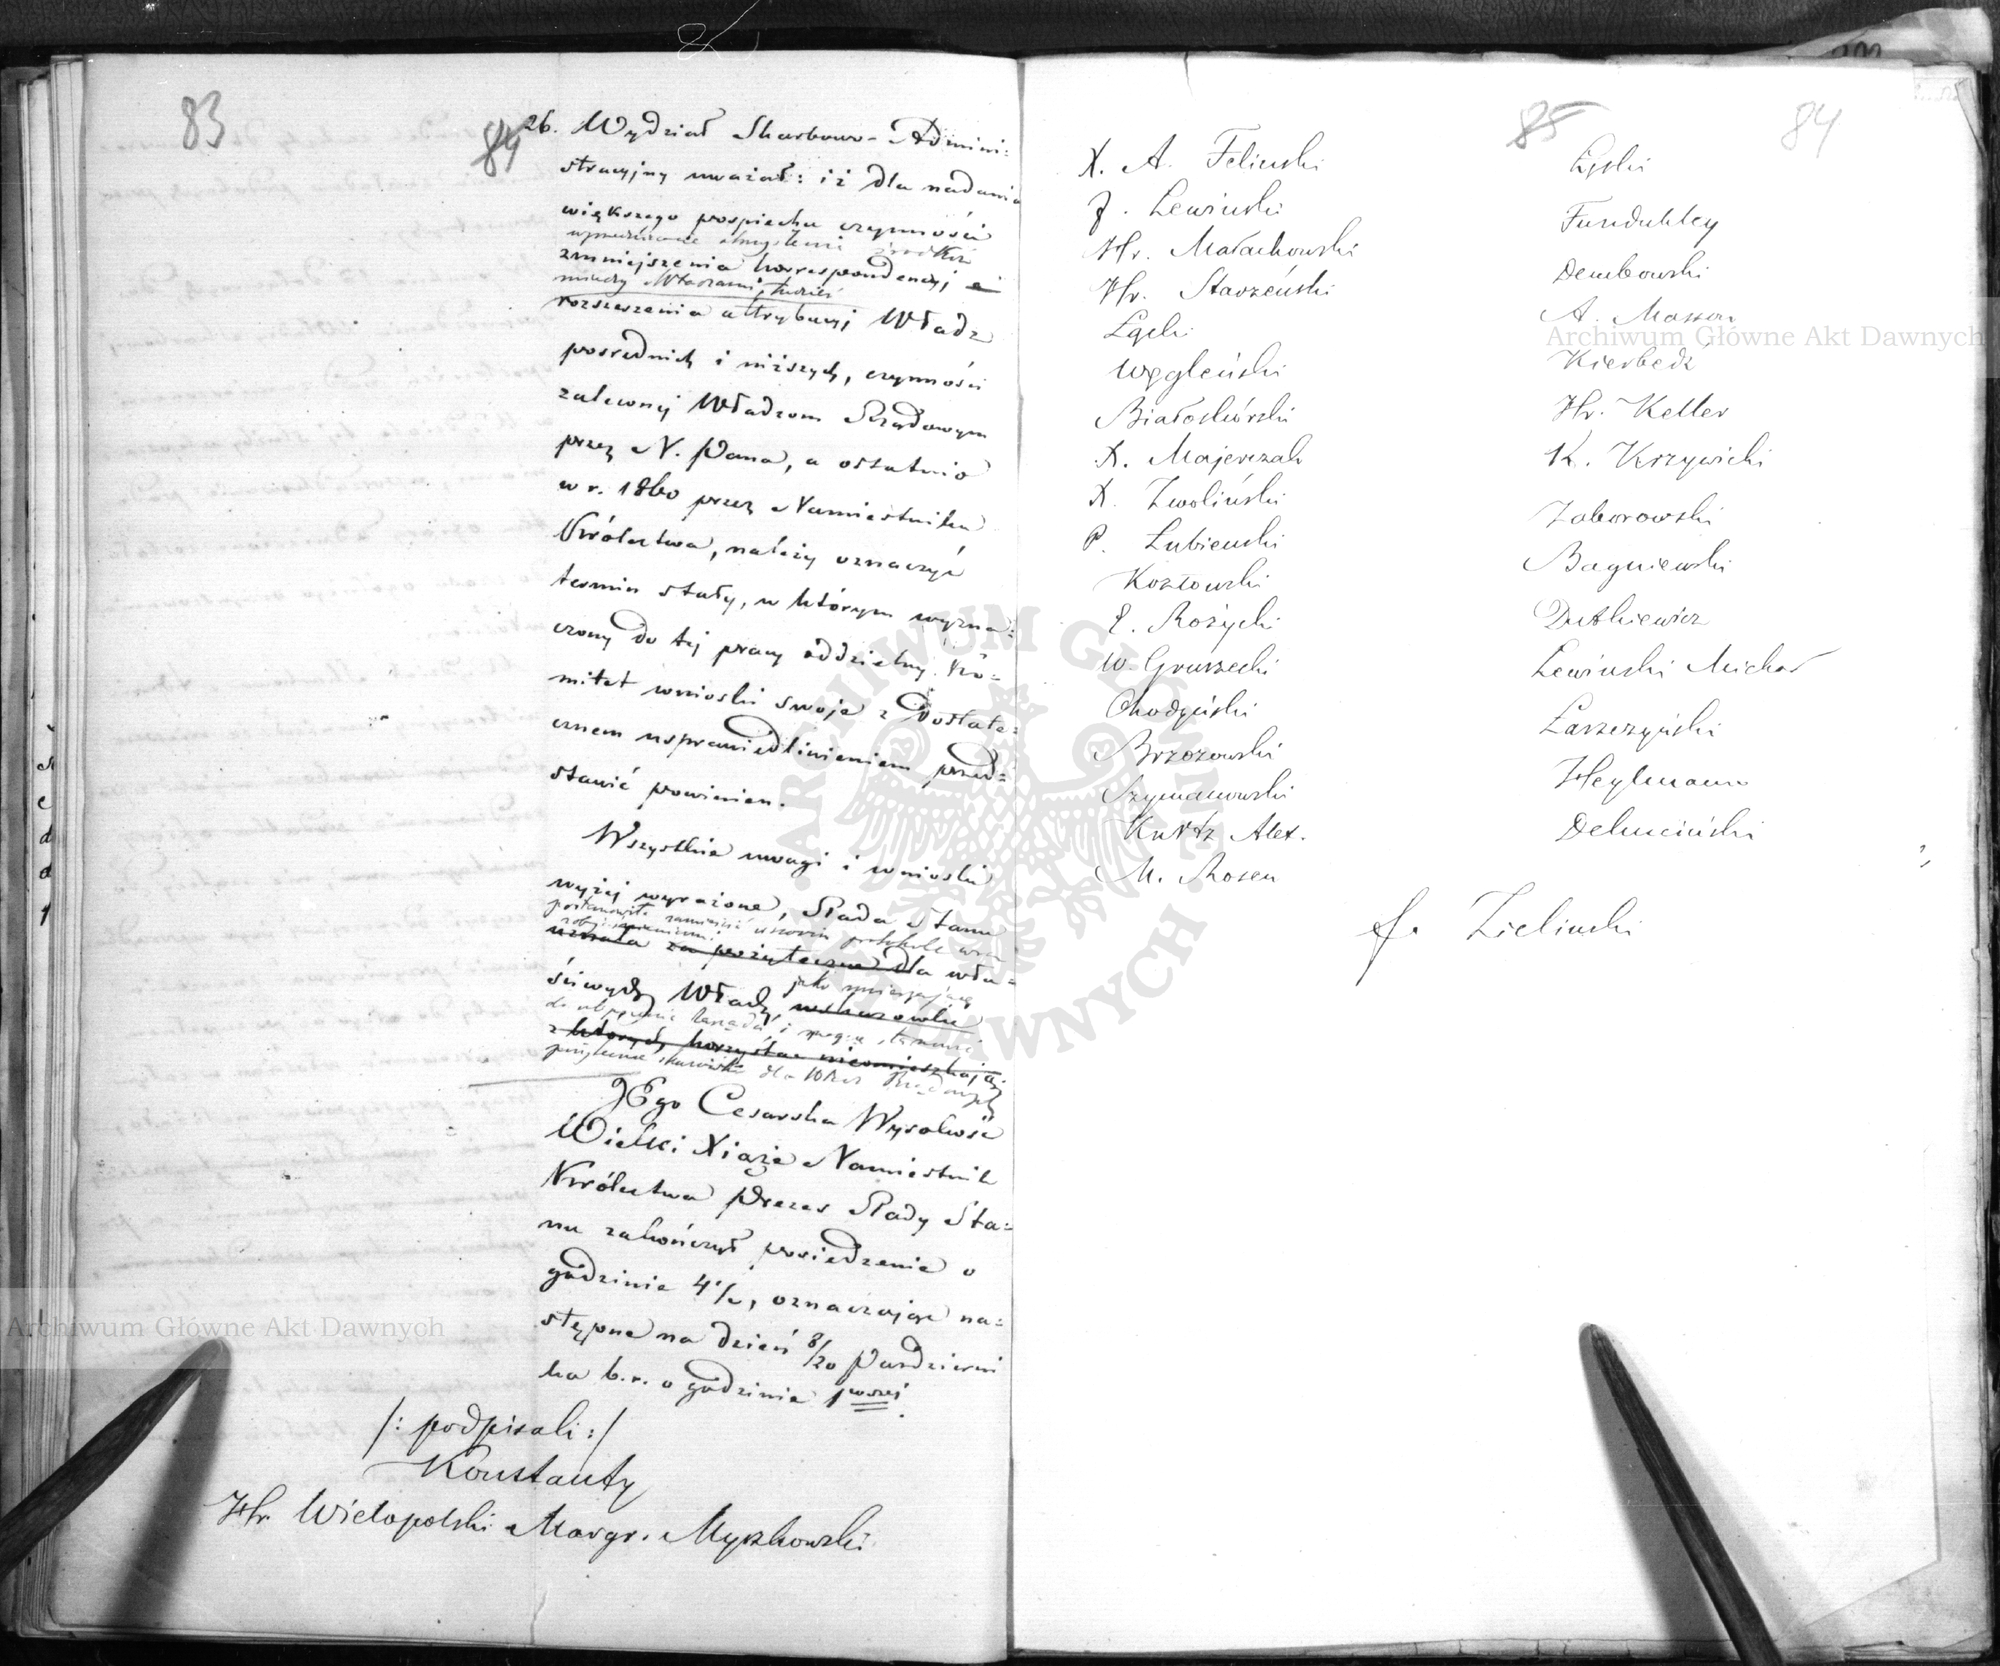 83
84
26. Wydział Skarbowo-Admini:
stracyjny uważał: iż dla nadania
większego pospiechu czynności
zmniejszenia korrespondencyj i
między Władzami, tudzież
rozszerzenia attrybucyj Władz
posrednich i niższych, czynności
zaleconej Władzom Rządowym
przez N. Pana, a ostatnio
w r. 1860 przez Namiestnika
Królestwa, należy oznaczyć
termin stały, w którym wyzna:
czony do tej pracy oddzielny Ko=
mitet wnioski swoje z dostate:
cznem usprawiedliwieniem przed=
stawić powinien.
Wszystkie uwagi i wnioski
wyżej wyrażone, Rada Stanu
postanowiła zamieścić protokole
uznała za pożyteczne dla wła=
jako
ściwych Władz, wskazówki
z których korzystać nieomieszkają
dla Władz Rządowych
JEgo Cesarska Wysokość
Wielki Xiąże Namiestnik
Królestwa Prezes Rady Sta=
nu zakończył posiedzenie o
godzinie 4 1/2, oznaczając na=
stępne na dzień 8/20 Październi
ka b.r. o godzinie 1wszej.
/: podpisali :/
Konstanty
Hr. Wielopolski Margr. Myszkowski
85
84
X. A. Feliński
J. Lewiński
Hr. Małachowski
Hr. Starzeński
Łęcki
Węgleński
Białoskórski
X. Majerczak
X. Zwoliński
P. Łubieński
Kozłowski
E. Różycki
W. Gruszecki
Chodyński
Brzozowski
Szymanowski
Kurtz Alex.
M. Rosen
Łęski
Funduhkley
Dembowski
A. Masson
Kierbedź
Hr. Keller
K. Krzywicki
Zaborowski
Bagniewski
Dutkiewicz
Lewiński Michał
Łaszczyński
Heylmann
Dekuciński
J. Zieliński
Archiwum Główne Akt Dawnych
Archiwum Główne Akt Dawnych
ARCHIWUM GŁÓWNE AKT DAWNYCH